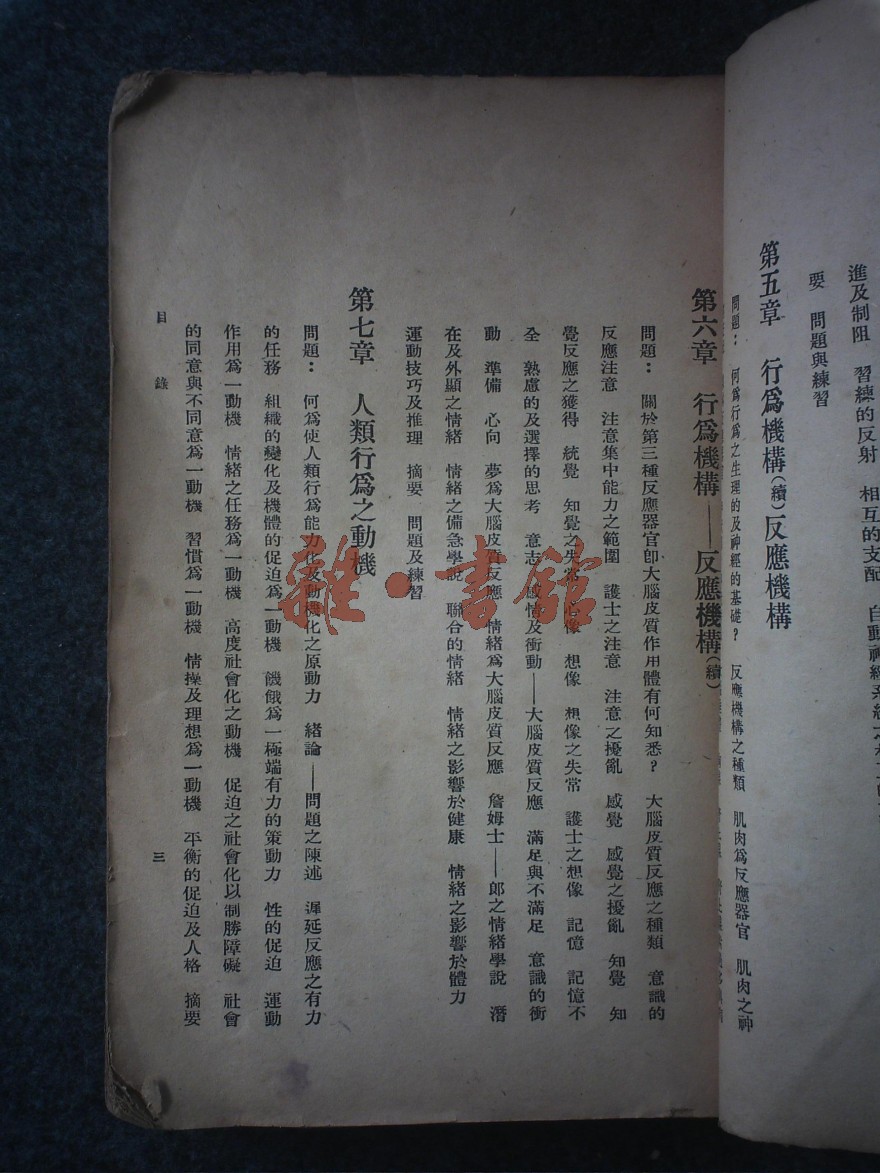 進及制阻 習練的反射 相互的支配
要 問題與練習
第五章 行爲機構(續)反應機構
問題: 何爲行爲之生理的及神經的基礎? 反應機構之種類 肌肉爲反應器官 肌肉之神
第六章 行爲機構——反應機構(續)
問題: 關於第三種反應器官卽大腦皮質作用體有何知悉? 大腦皮質反應之種類 意識的
反應注意 注意集中能力之範圍 護士之注意 注意之擾亂 感覺 感覺之擾亂 知覺 知
覺反應之獲得 統覺 知覺之失常 心像 想像 想像之失常 護士之想像 記憶 記憶不
全 熟慮的及選擇的思考 意志 感情及衝動——大腦皮質反應 滿足與不滿足 意識的衝
動 準備 心向 夢爲大腦皮質反應 情緒爲大腦皮質反應 詹姆士——郎之情緒學說 潛
在及外顯之情緒 情緒之備急學說 聯合的情緒 情緒之影響於健康 情緒之影響於體力
運動技巧及推理 摘要 問題及練習
第七章 人類行爲之動機
問題: 何爲使人類行爲能力化及動機化之原動力 緒論——問題之陳述 遲延反應之有力
的任務 組織的變化及機體的促迫爲一動機 饑餓爲一極端有力的策動力 性的促迫 運動
作用爲一動機 情緒之任務爲一動機 高度社會化之動機 促迫之社會化以制勝障礙 社會
的同意與不同意爲一動機 習慣爲一動機 情操及理想爲一動機 平衡的促迫及人格 摘要
目錄 三
雜·書館